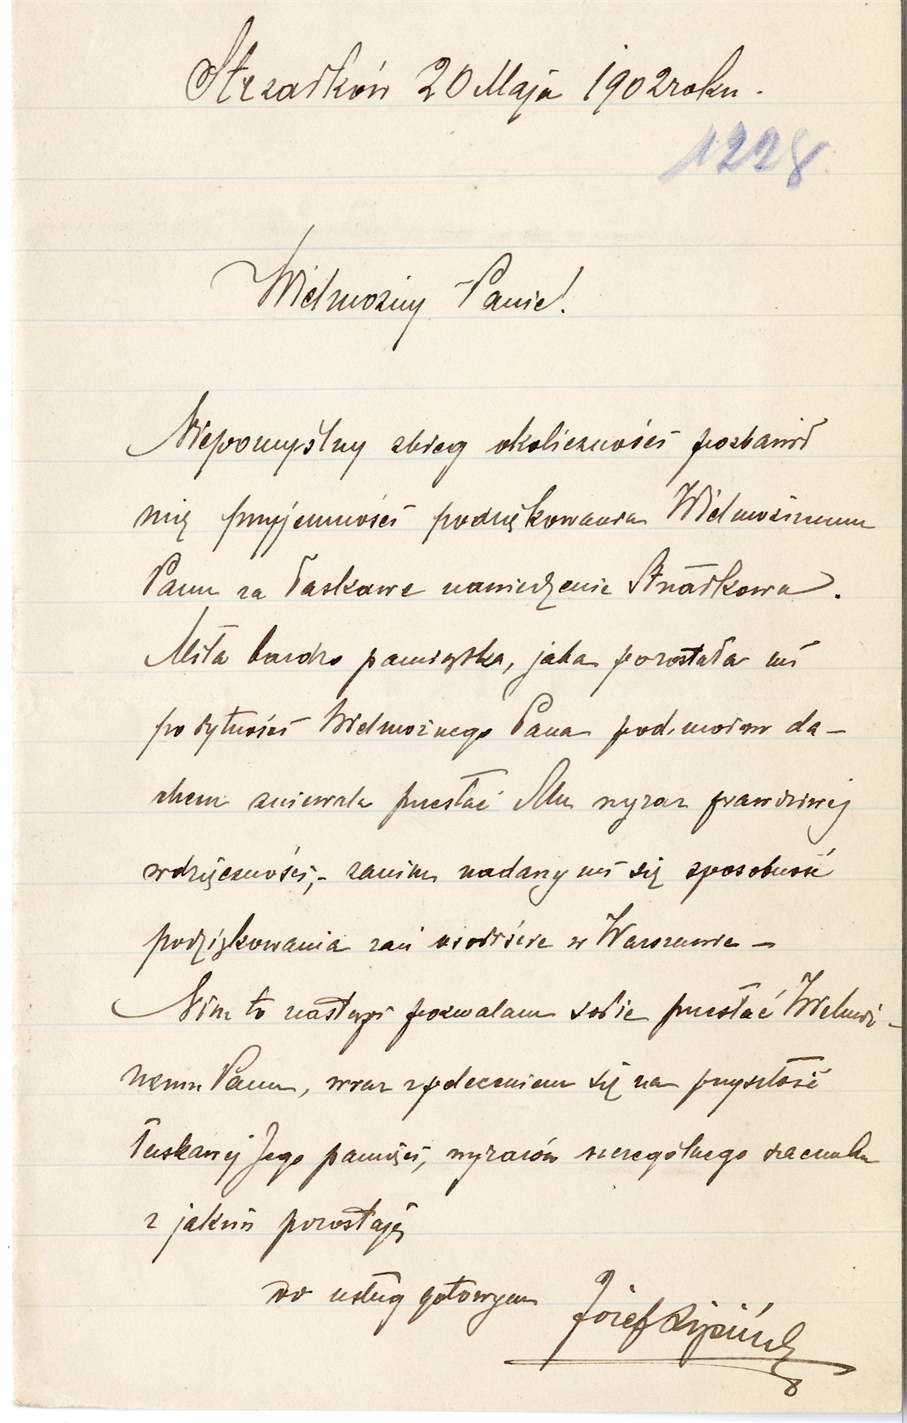 Strzałków 20 Maja 1902 roku.
1228.
Wielmożny Panie!
Niepomyślny zbieg okoliczności pozbawił
mię przyjemności podziękowania Wielmożnemu
Panu za łaskawe nawiedzenie Strzałkowa.
Miła bardzo pamiątka, jaka pozostała mi
po bytności Wielmożnego Pana pod moim da-
chem zniewala przesłać Mu wyraz prawdziwej
wdzięczności,- zanim nadarzy mi się sposobność
podziękowania zań osobiście w Warszawie -
Nim to nastąpi pozwalam sobie przesłać Wielmoż-
nemu Panu, wraz z poleceniem się na przyszłość
łaskawej Jego pamięci, wyrazów szczególnego szacunku
z jakim pozostaję
do usług gotowym
Józef